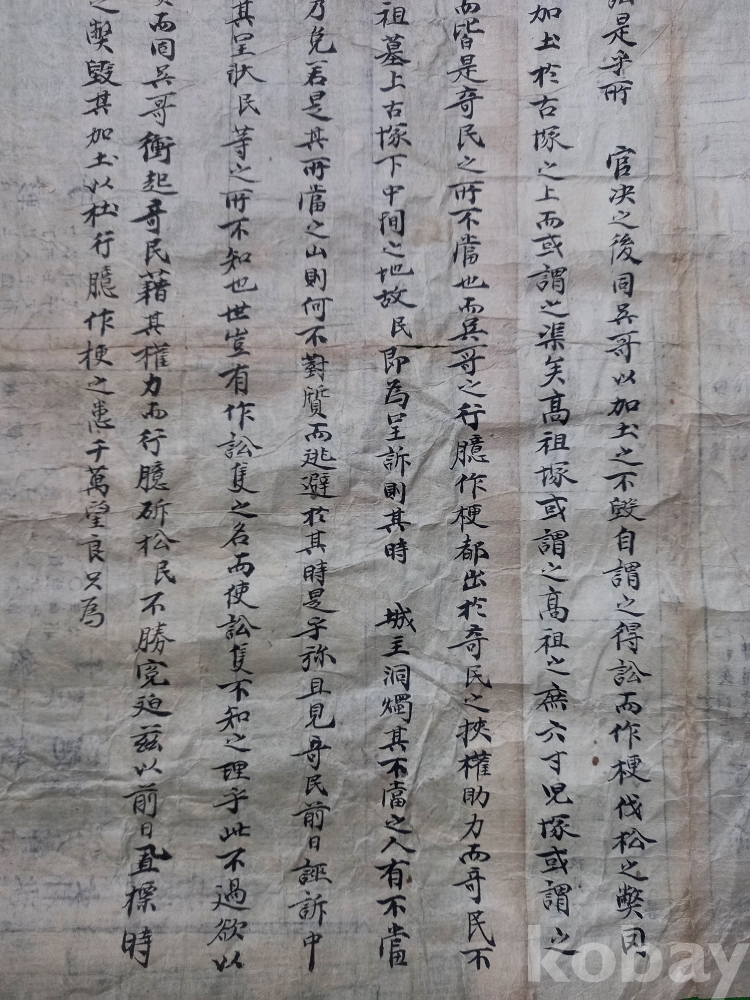 訟是乎所 官决之後同吳哥以加土之不毁自謂之得訟而作梗伐松之弊罔
加土於古塚之上而或謂之渠矣高祖塚或謂之高祖之庶六寸児塚或謂之
而皆是奇民之所不當也而吳哥之行臆作梗都出於奇民之挾權助力而奇民不
祖墓上古塚下中間之地故民即為呈訴則其時 城主洞燭其不當之入有不當
乃免若是其所當之山則何不對質而逃避於其時是乎旀且見奇民前日誣訴中
其呈狀民等之所不知也世豈有作訟隻之名而使訟隻不知之理乎此不過欲以
而同吳哥衡起奇民藉其權力而行臆斫松民不勝寃迫玆以前日置標時
之弊毀其加土以杜行臆作梗之患千萬望良只為
kobay